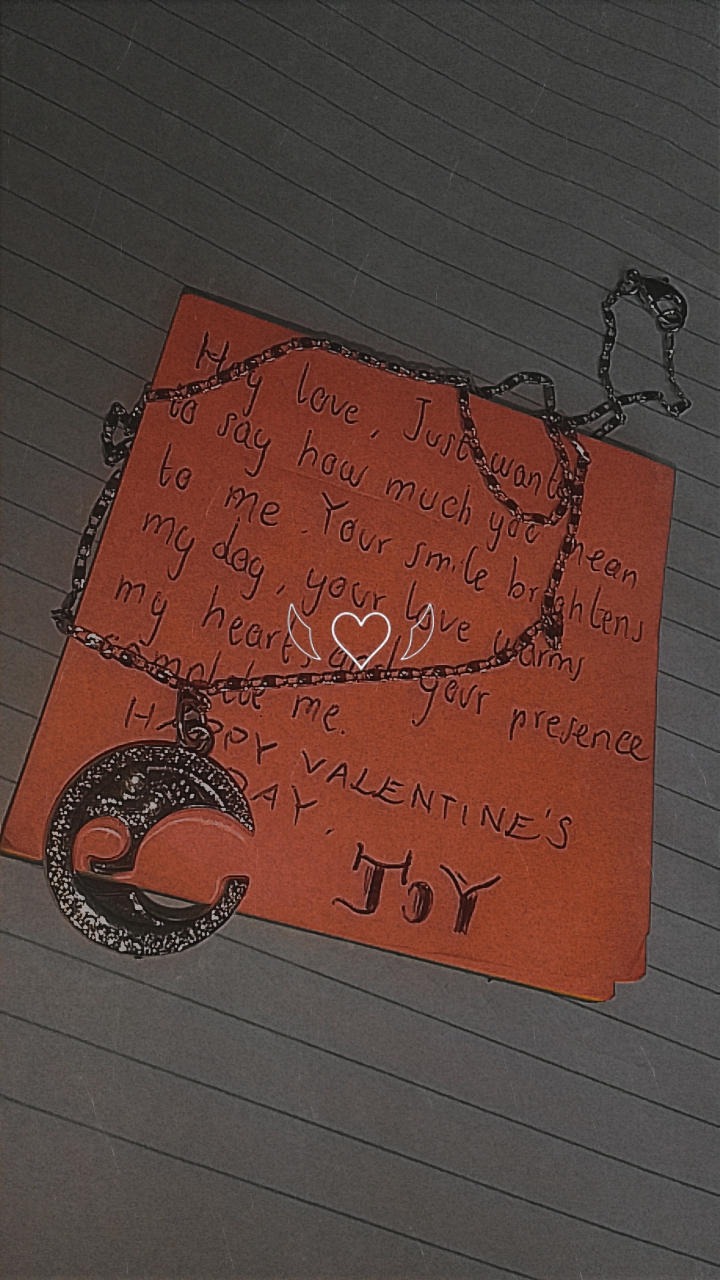 Hey love, Just wanted
to say how much you mean
to me. Your smile brightens
my day, your love warms
my heart, and your presence
complete me.
HAPPY VALENTINE'S
DAY,
JOY